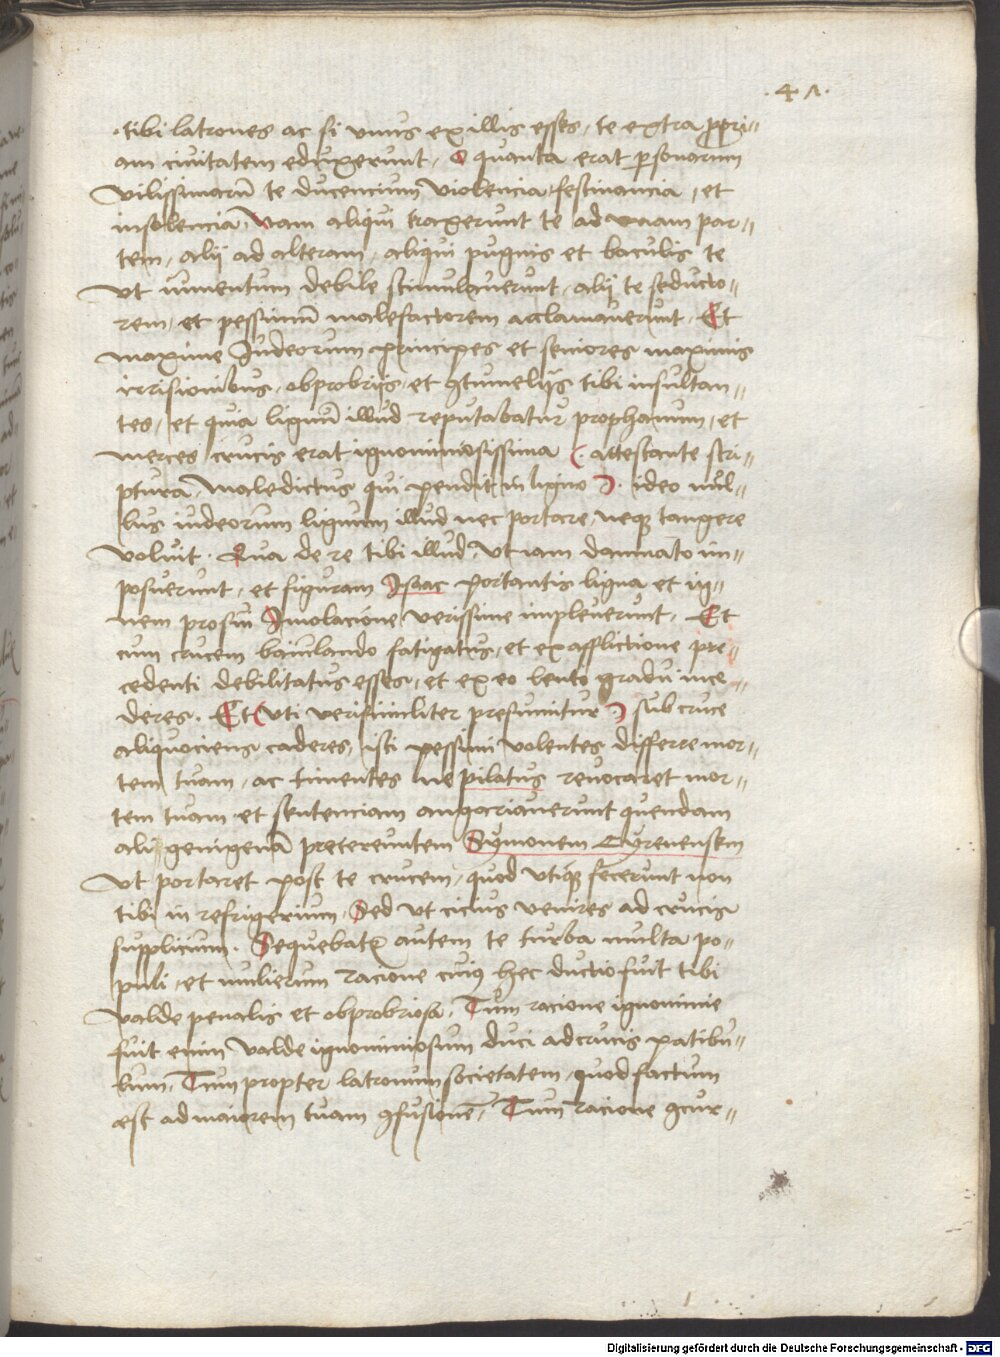 .4Λ.
tibi latrones ac si vnus ex illis esses, te extra ppri=
am ciuitatem eduxerunt, O quanta erat psonarum
vilissimarū te ducencium violencia festinancia, et
insolencia, Nam aliqui traxerunt te ad vnam par=
tem, alij ad alteram, aliqui pugnis et baculis te
vt iumentum debile stimulauerunt, alij te seducto=
rem, et pessimū malefactorem acclamauerunt. Et
maxime Judeorum principes et seniores maximis
irrisionibus, obprobrijs, et ꝯtumelijs tibi insultan=
tes, et quia lignū illud reputabatur prophanum, et
merces crucis erat ignominiosissima (. attestante scri=
ptura, Maledictus qui pendit in ligno ). ideo nul=
lus iudeorum lignum illud nec portare, neqꝫ tangere
voluit. Qua de re tibi illud vt iam damnato im=
posuerunt, et figuram Isaac portantis ligna et ig=
nem pro sui Imolacione verissime impleuerunt. Et
cum crucem baiulando fatigatus, et ex afflictione pre=
cedenti debilitatus esses, et ex eo lento gradu ince=
deres. Et (vti verisimiliter presumitur ) sub cruce
aliquociens caderes, isti pessimi volentes differre mor=
tem tuam, ac timentes ne pilatus reuocaret mor=
tem tuam et sentenciam angariauerunt quendam
alienigenā pretereuntem Symonem Cyrenensem
vt portaret post te crucem, quod vtiqꝫ fecerunt non
tibi in refrigerium, Sed vt cicius venires ad crucis
supplicium. Sequebatꝛ autem te turba multa po=
puli, et mulierum racione cuiꝰ hec ductio fuit tibi
valde penalis et obprobriosa, Tum racione ignominie
fuit enim valde ignominiosum duci ad crucis patibu=
lum, Tum propter latronum societatem, quod factum
est ad maiorem tuam ꝯfusionē, Tum racione ꝯcur=
Digitalisierung gefördert durch die Deutsche Forschungsgemeinschaft - DFG